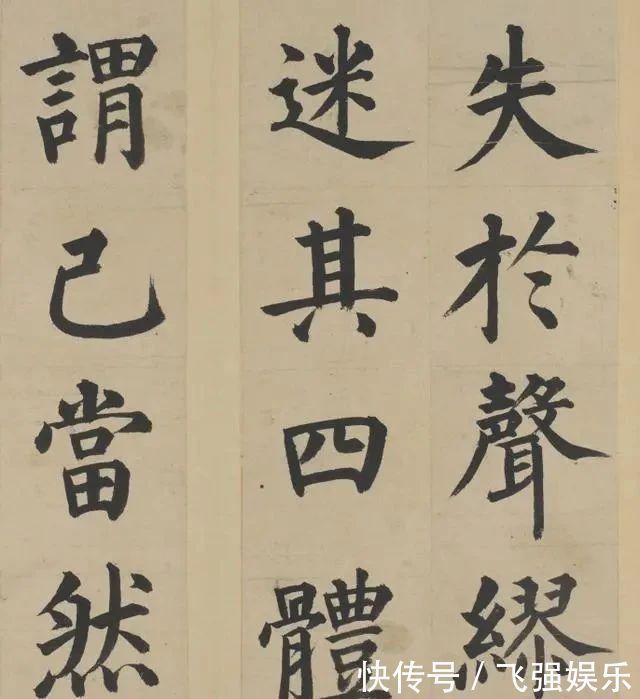 失於聲繆
迷其四體
謂己當然
快传号／飞强娱乐